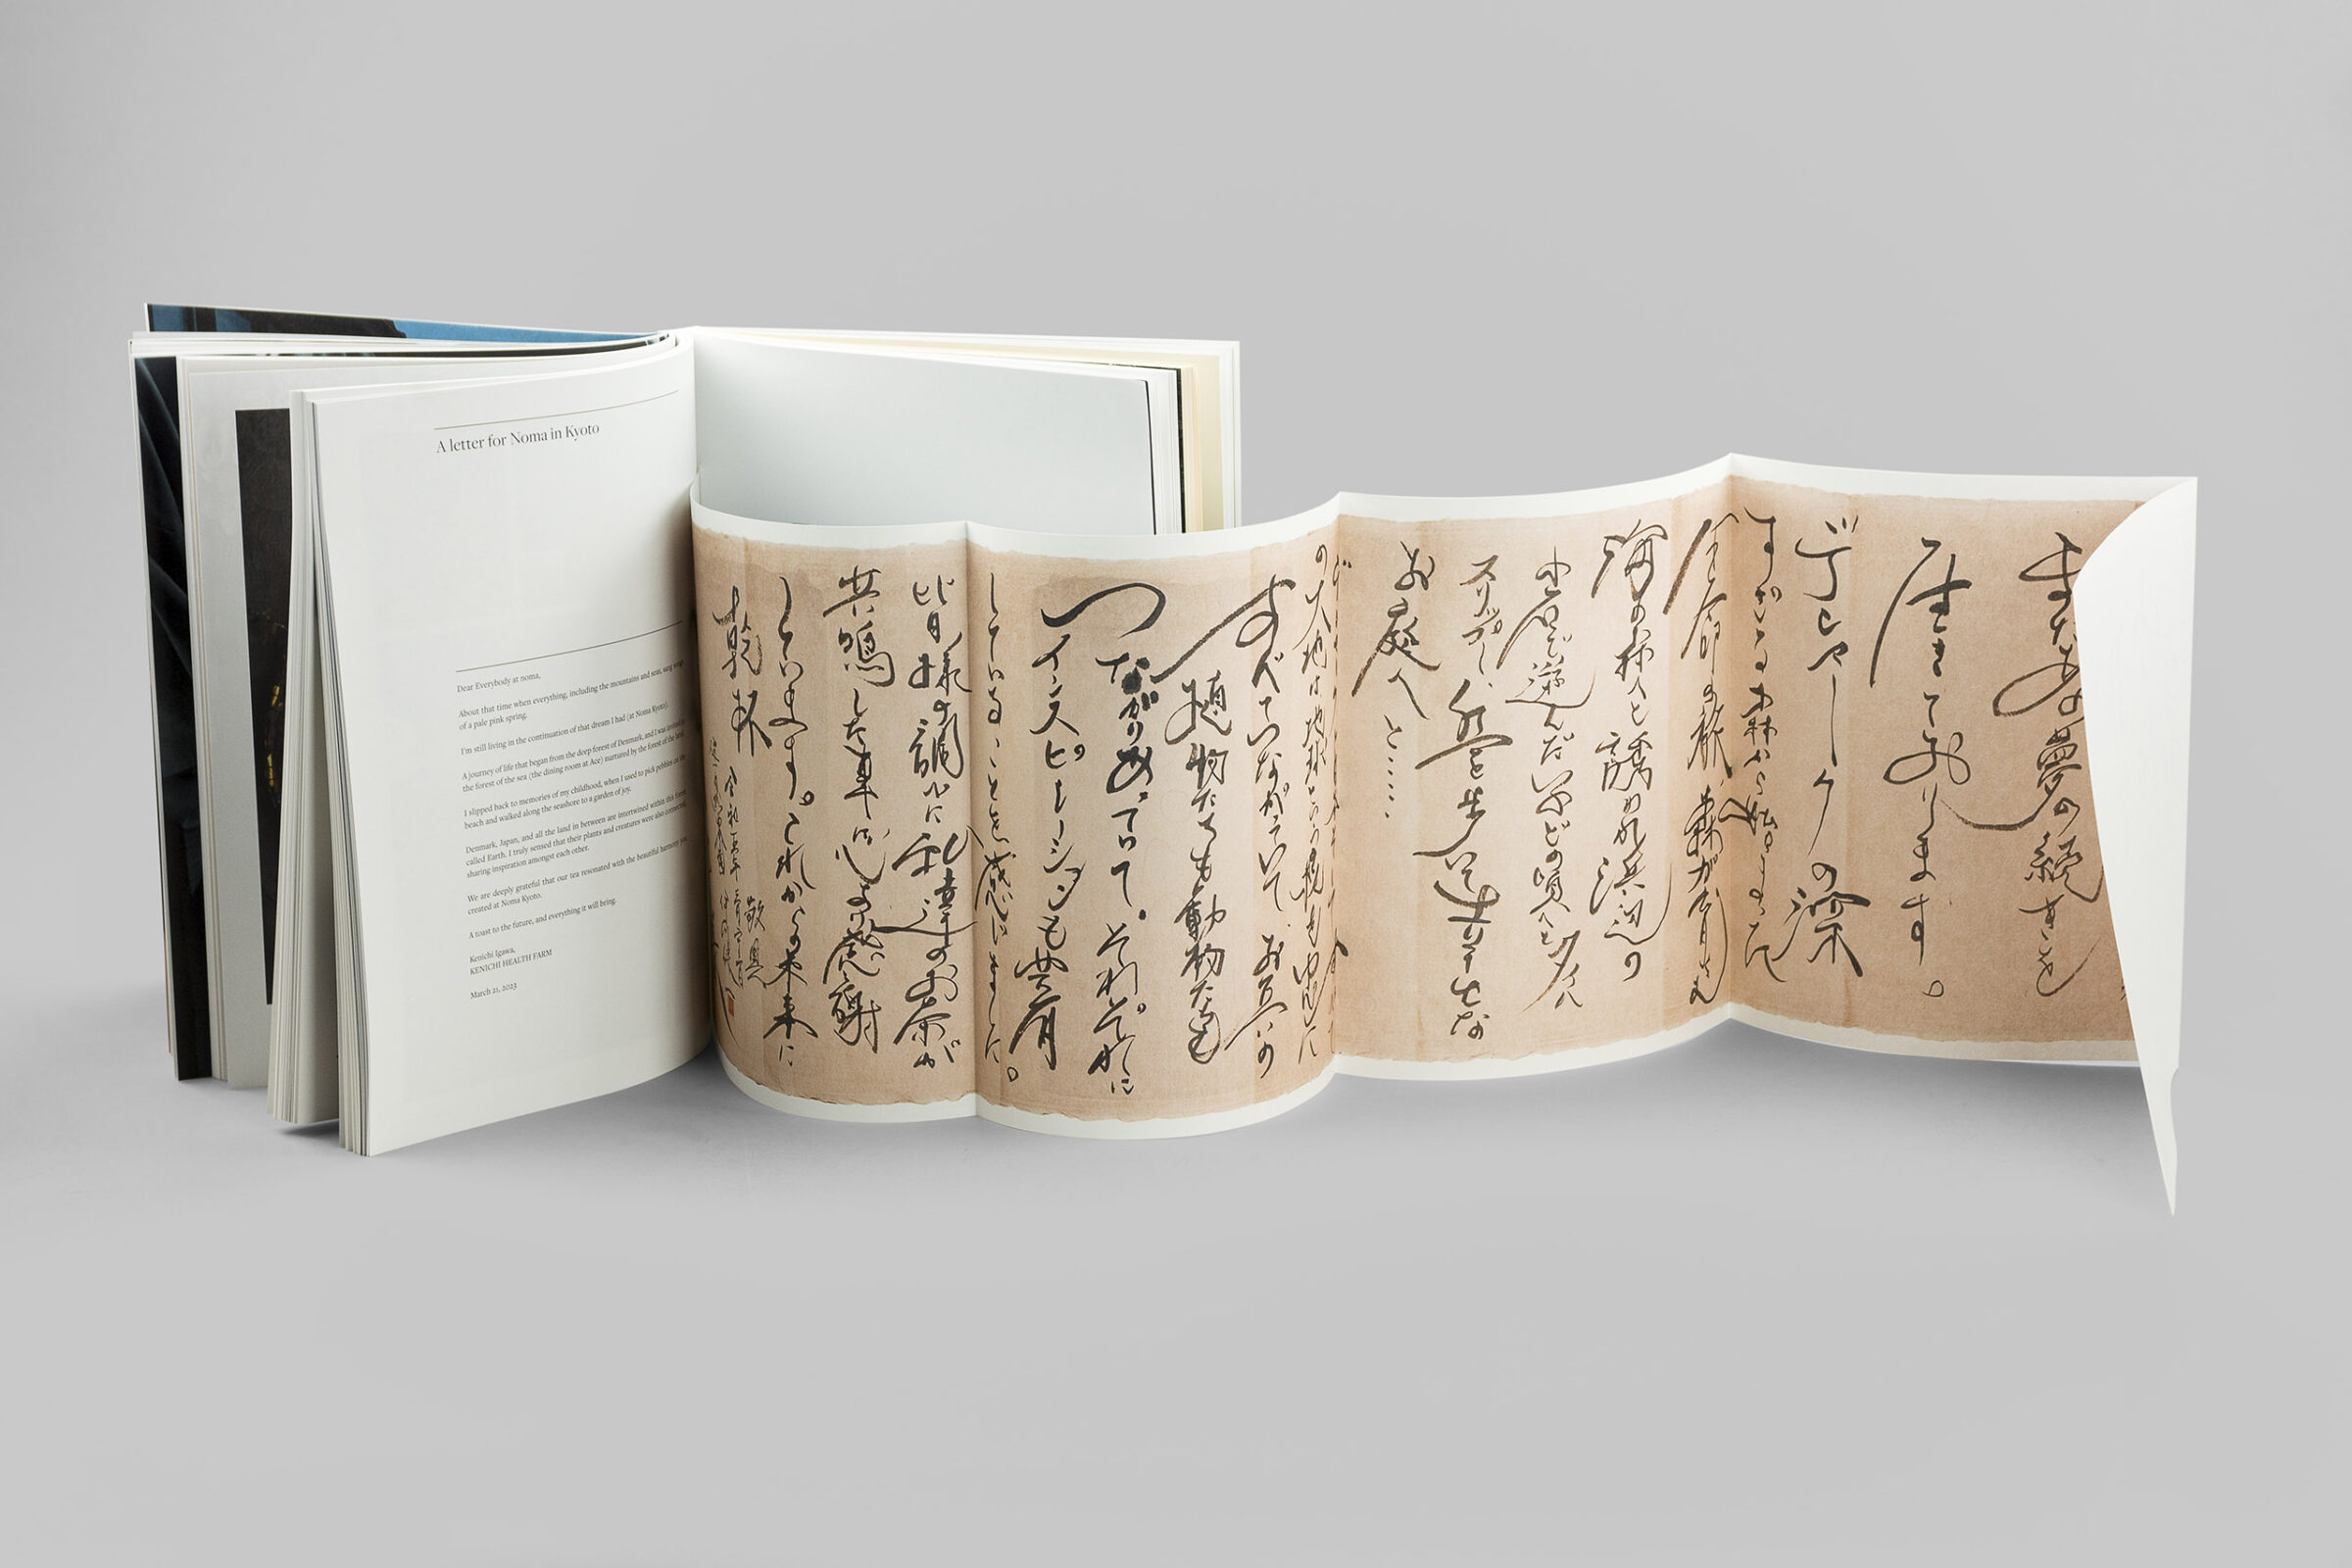 A letter for Noma in Kyoto
Dear Everybody at noma,
About that time when everything, including the mountains and seas, sang songs
of a pale pink spring.
I'm still living in the continuation of that dream I had (at Noma Kyoto).
A journey of life that began from the deep forest of Denmark, and I was invited to
the forest of the sea (the dining room at Ace) nurtured by the forest of the land.
I slipped back to memories of my childhood, when I used to pick pebbles on the
beach and walked along the seashore to a garden of joy.
Denmark, Japan, and all the land in between are intertwined within this forest
called Earth. I truly sensed that their plants and creatures were also connected,
sharing inspiration amongst each other.
We are deeply grateful that our tea resonated with the beautiful harmony you
created at Noma Kyoto.
A toast to the future, and everything it will bring.
Kenichi Igawa,
KENICHI HEALTH FARM
March 21, 2023
夢の続きを
生きております。
デンマークの深
森から始まった
生命の旅、森が育む
海の森へと誘われ浜辺の
小石で遊んだ
スリップし、
お庭へと……
の大地は地球という
すべてつながっていて、お互いの
植物たちも動物たちも
つながりあっていて、それぞれに
インスピレーションも共有
していることを感じました。
皆様の調に私達のお茶が
共鳴した事に心より感謝
しています。これからの未来に
乾杯
敬具